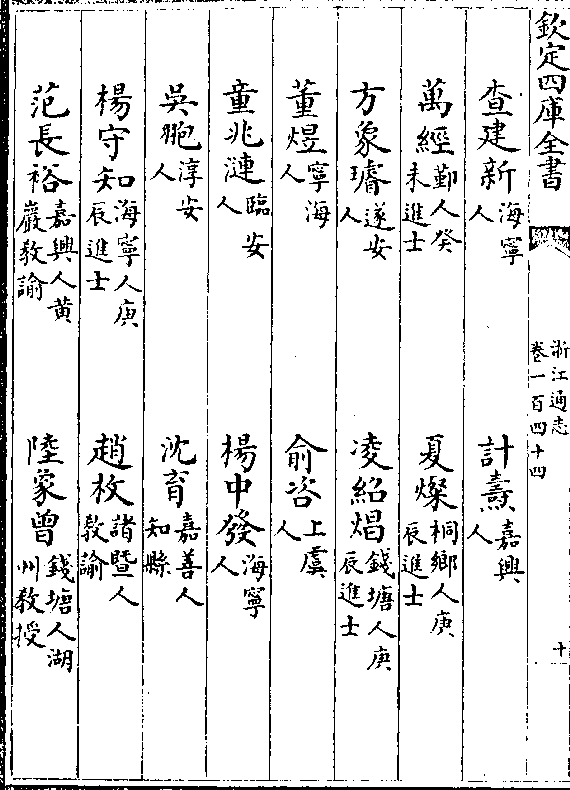 欽定四庫全書
浙江通志
卷一百四十四
十
查建新海寧人 計燾嘉興人
萬經鄞人癸未進士 夏燦桐鄉人庚辰進士
方象璿遂安人 凌紹焻錢塘人庚辰進士
董煜寧海人 俞咨上虞人
童兆漣臨安人 楊中發海寧人
吳飽淳安人 沈育嘉善人知縣
楊守知海寧人庚辰進士 趙枚諸暨人教諭
范長裕嘉興人黃巖教諭 陸家曾錢塘人湖州教授